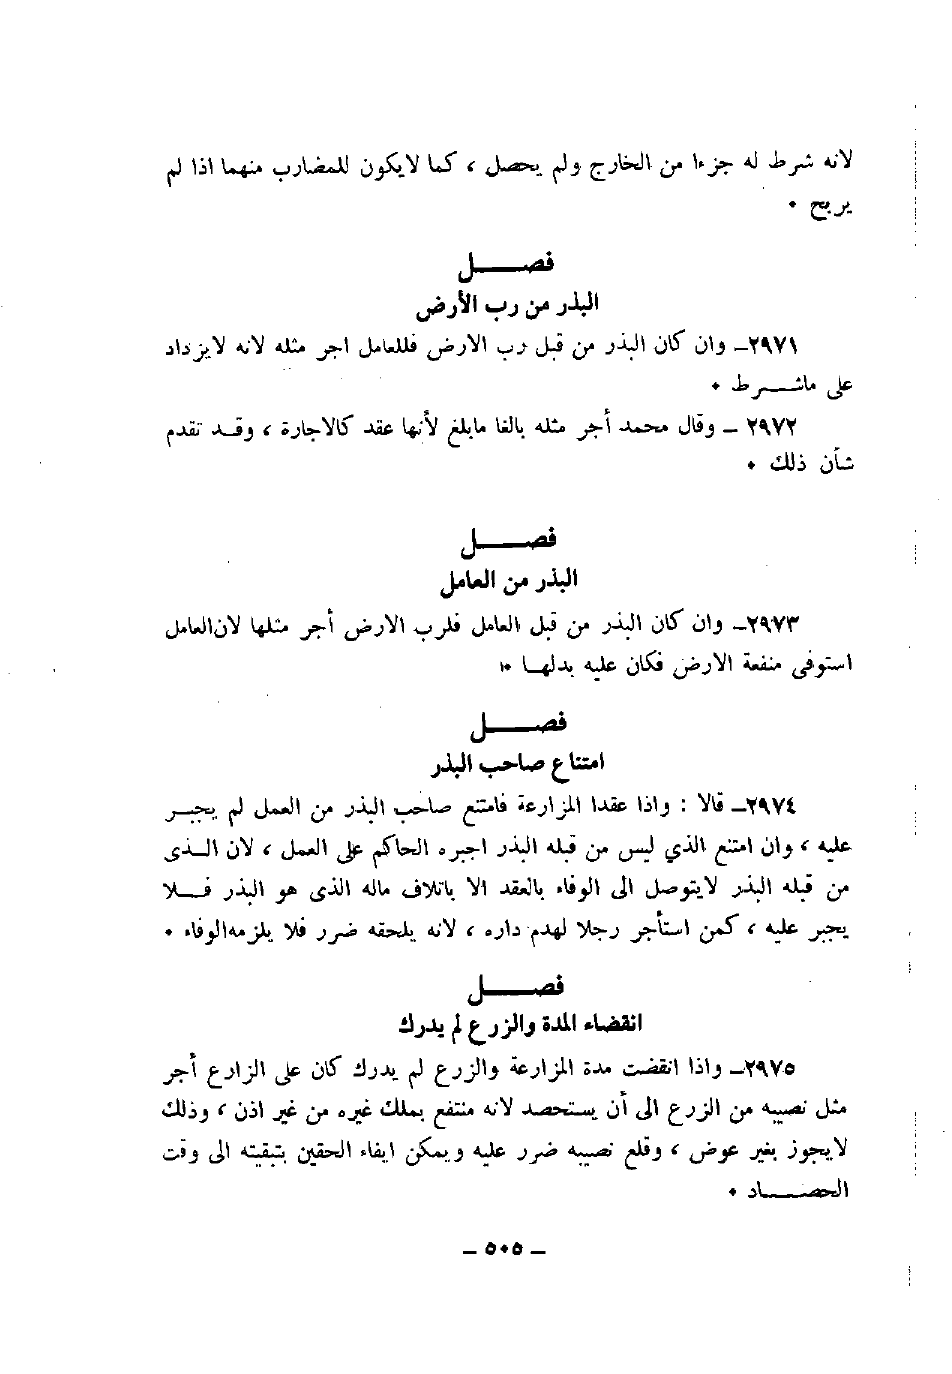 لانه شرط له جزءا من الخارج ولم يحصل ، كما لايكون للمضارب منهما اذا لم
يربح ٠
فصـــــل
البذر من رب الأرض
٢٩٧١ــ وان كان البذر من قبل رب الارض فللعامل اجر مثله لانه لايزداد
على ماشـــرط ٠
٢٩٧٢ ــ وقال محمد أجر مثله بالغا مابلغ لأنها عقد كالاجارة ، وقـد تقدم
شأن ذلك ٠
فصـــــل
البذر من العامل
٢٩٧٣ــ وان كان البذر من قبل العامل فلرب الارض أجر مثلها لان العامل
استوفى منفعة الارض فكان عليه بدلهـا ٠
فصـــــل
امتناع صاحب البذر
٢٩٧٤ــ قالا : واذا عقدا المزارعة فامتنع صاحب البذر من العمل لم يجبـر
عليه ، وان امتنع الذي ليس من قبله البذر اجبره الحاكم على العمل ، لان الـذى
من قبله البذر لايتوصل الى الوفاء بالعقد الا باتلاف ماله الذى هو البذر فـــلا
يجبر عليه ، كمن استأجر رجلا لهدم داره ، لانه يلحقه ضرر فلا يلزمه الوفاء ٠
فصـــــل
انقضاء المدة والزرع لم يدرك
٢٩٧٥ــ واذا انقضت مدة المزارعة والزرع لم يدرك كان على الزارع أجر
مثل نصيبه من الزرع الى أن يستحصد لانه منتفع بملك غيره من غير اذن ، وذلك
لايجوز بغير عوض ، وقلع نصيبه ضرر عليه ويمكن ايفاء الحقين بتبقيته الى وقت
الحصـــاد ٠
ــ ٥٠٥ ــ